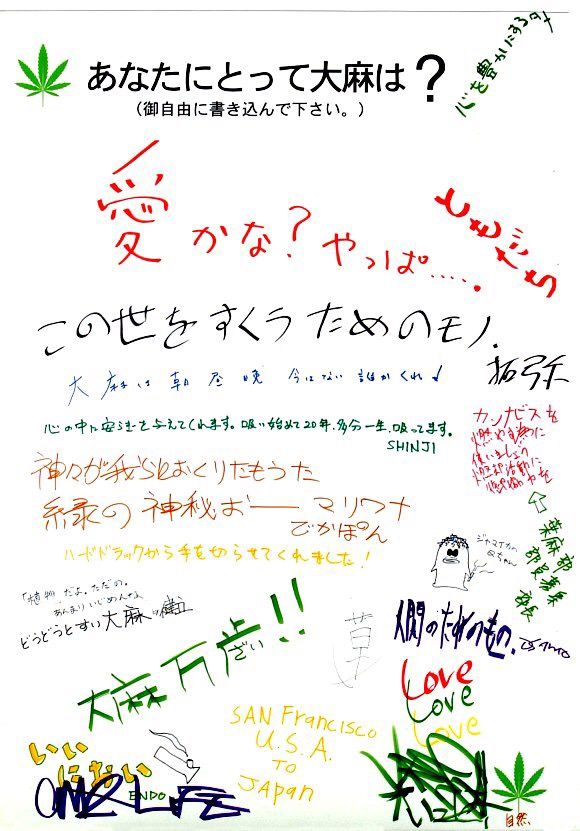 あなたにとって大麻は？
(御自由に書き込んで下さい。)
心を豊かにする
愛かな？やっぱ.....
ともだち
この世をすくうためのモノ.
拓弥
大麻は朝昼晩 今はない 誰かくれ！
心の中に安らぎを与えてくれます。吸い始めて20年.多分一生.吸ってます。
SHINJI
カンナビスを
神々が我らにおくりたもうた
緑の神秘おーー マリワナ
でかぽん
ハードドラッグから手を切らせてくれました！
葉麻部
部員募集
部長
ジャマイカの
「植物」だよ。ただの。
あんまりいじめんな
どうどうとすい大麻
人間のためのもの.
大麻万歩!!
ざい
草
Love
Love
Love
SAN Francisco
U.S.A.
TO
JAPAN
いい
ENDO
自然、